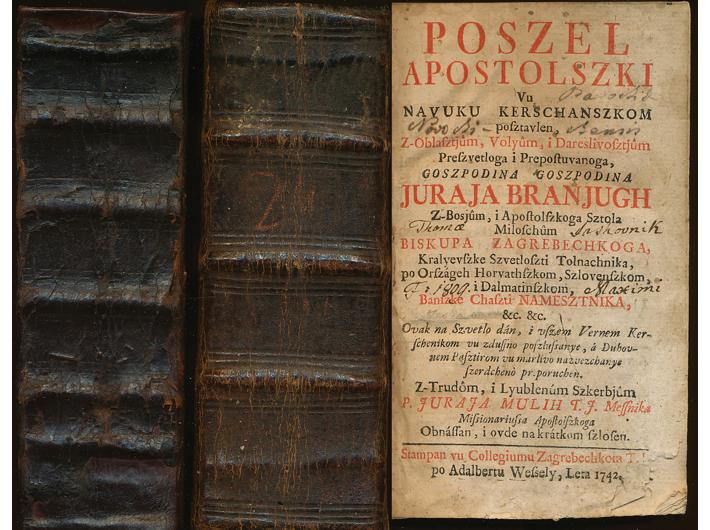 2
POSZEL
APOSTOLSZKI
Vu
NAVUKU KERSCHANSZKOM
posztavlen,
Z-Oblasztjûm, Volyûm, i Dareslivosztjûm
Preszvetloga i Prepostuvanoga,
GOSZPODINA GOSZPODINA
JURAJA BRANJUGH
Z-Bosjûm, i Apostolszkoga Sztola
Thomæ Miloschûm
BISKUPA ZAGREBECHKOGA,
Kralyevszke Szvetloszti Tolnachnika,
po Országeh Horvathszkom, Szlovenszkom,
1800. i Dalmatinszkom, Maximi
Banszke Chaszti NAMESZTNIKA,
&c. &c.
Ovak na Szvetlo dán, i vszem Vernem Ker-
schenikom vu zdussno poszlussanye, á Duhov-
nem Pasztirom vu marlivo nazvezchanye
szerdchenò pr. poruchen.
Z-Trudôm, i Lyublenúm Szkerbjûm
P. JURAJA MULIH T. J. Messnika
Missionariussa Apostolszkoga
Obnássan, i ovde na krátkom szlosen.
Stampan vu Collegiumu Zagrebechkom T.
po Adalbertu Wessely, Leta 1742.